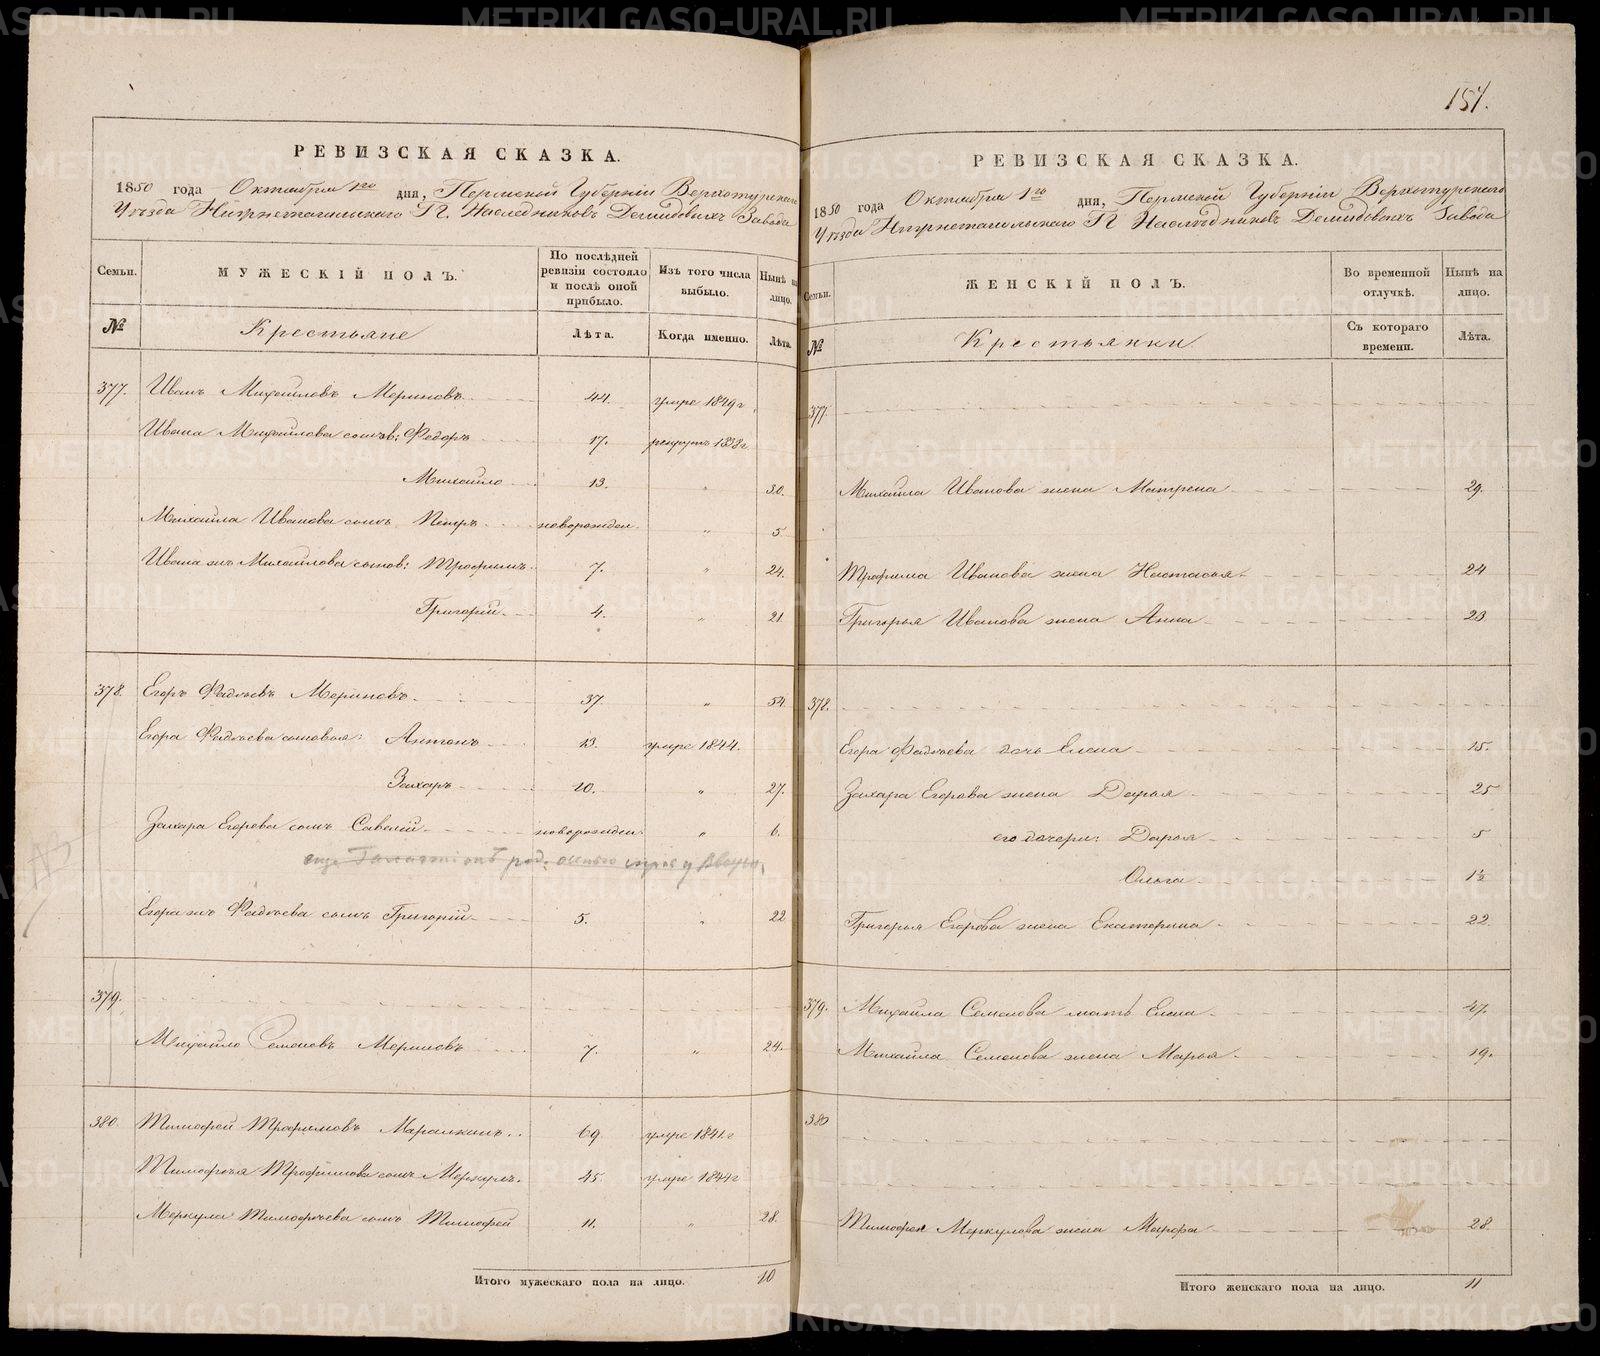 157.
РЕВИЗСКАЯ СКАЗКА.
1850 года Октября 1го дня, Пермской Губерніи Верхотурскаго
Уѣзда Нижнетагильскаго Г. Наследниковъ Демидовыхъ Завода
Семьи.
МУЖЕСКІЙ ПОЛЪ.
По послѣдней ревизіи состояло и послѣ оной прибыло.
Изъ того числа выбыло.
Нынѣ на лицо.
№
Крестьяне
Лѣта.
Когда именно.
Лѣта.
377. Иванъ Михайловъ Мериновъ 44. умре 1849г
Ивана Михайлова сынов: Федоръ 17. рекрутъ 1838г
Михайло 13. " 30.
Михайла Ивановa сынъ Петръ новорожден. " 5
Ивана жъ Михайлова сынов: Трофимъ 7. " 24.
Григорій 4. " 21.
378. Егоръ Фадѣевъ Мериновъ 37. " 54.
Егора Фадѣева сыновья: Антонъ 13. умре 1844.
Захаръ 10. " 27.
Захара Егорова сынъ Савелій новорожден: " 6.
еще
Егора жъ Фадѣева сынъ Григорій 5. " 22
379.
Михайло Семеновъ Мериновъ 7. " 24.
380. Тимофей Трофимовъ 69 умре 1841.г
Тимофѣя Трофимова сынъ Меркулъ. 45. умре 1844г
Меркула Тимофѣева сынъ Тимофей 11. " 28.
Итого мужескаго пола на лицо. 10
РЕВИЗСКАЯ СКАЗКА.
1850 года Октября 1го дня, Пермской Губерніи Верхотурскаго
Уѣзда Нижнетагильскаго Г. Наслѣдниковъ Демидовыхъ Завода
Семьи.
ЖЕНСКІЙ ПОЛЪ.
Во временной отлучкѣ.
Нынѣ на лицо.
№
Крестьянки
Съ котораго времени.
Лѣта.
377.
Михайла Иванова жена Матрена 29.
Трофима Иванова жена Настасья 24
Григорья Иванова жена Анна 23
378.
Егора Фадѣева дочь Елена 15.
Захара Егорова жена Дарья 25
его дочери: Дарья 5
Ольга 1½
Григорья Егорова жена Екатерина 22.
379. Михайла Семенова мать Елена 47.
Михайла Семенова жена Марья 19.
380
Тимофея Меркулова жена Марфа 28.
Итого женскаго пола на лицо. 11
METRIKI.GASO-URAL.RU